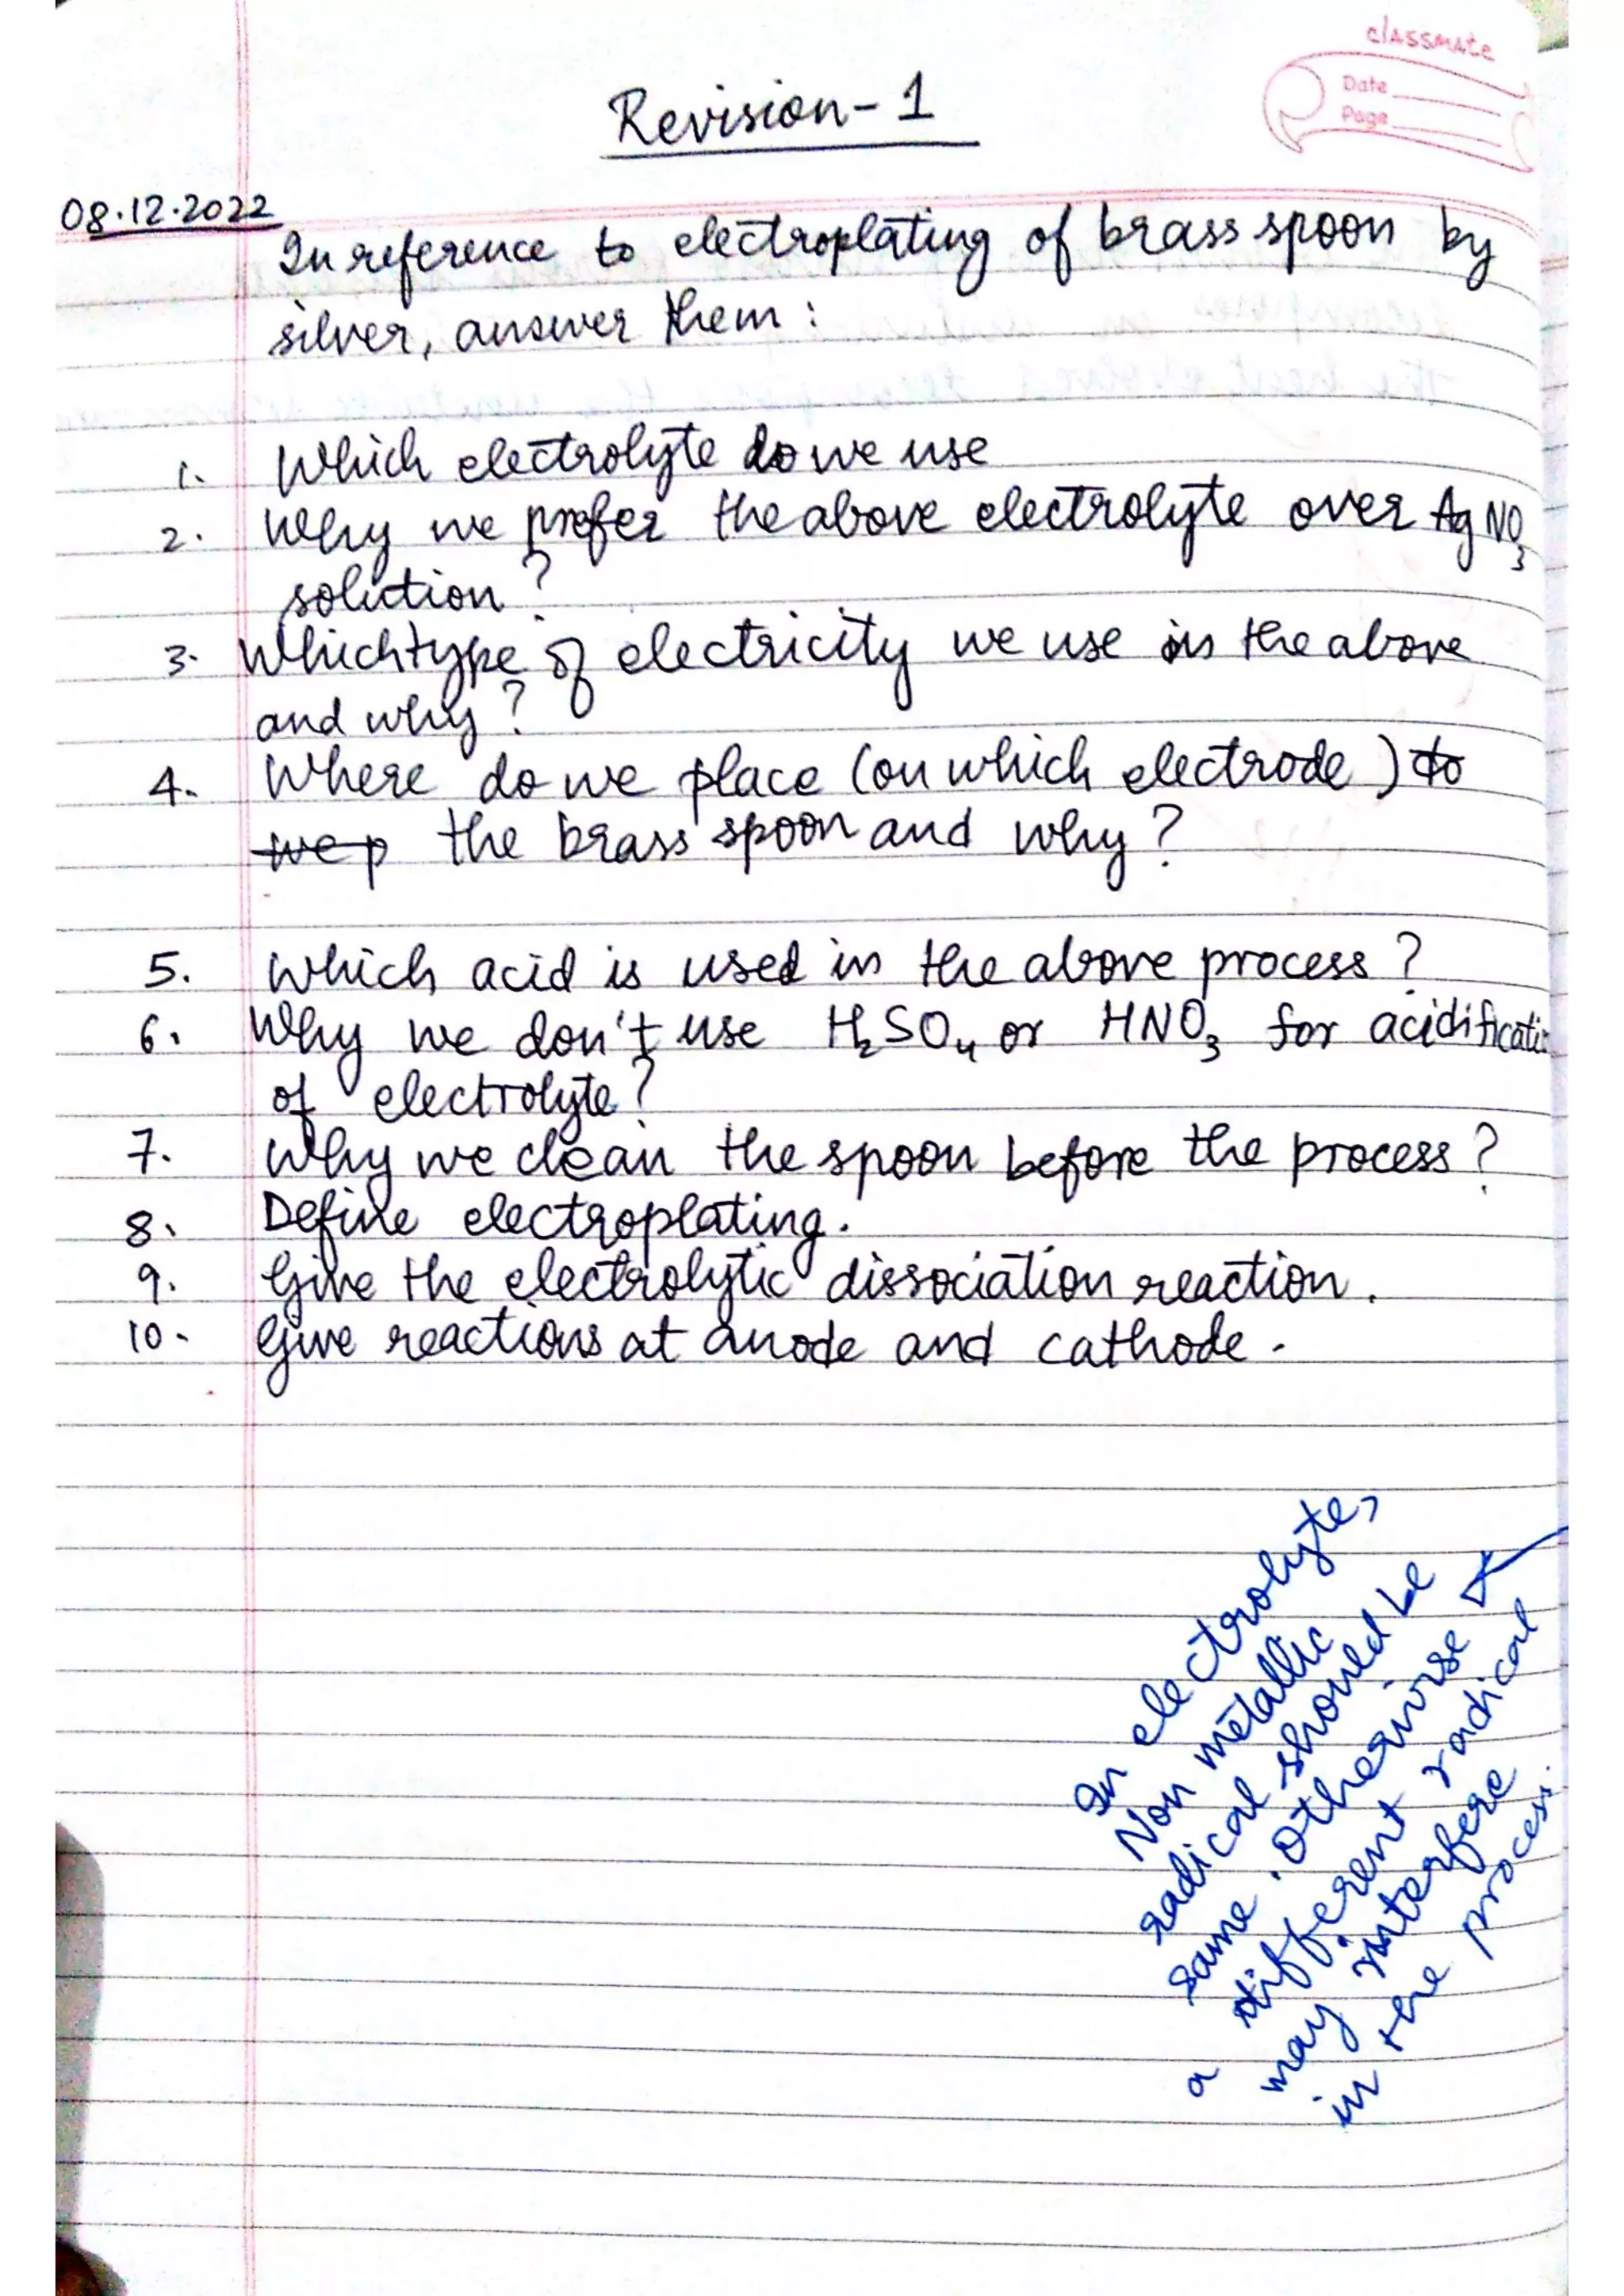 classmate
Date
Page
Revision-1
08.12.2022
In reference to electroplating of brass spoon by
silver, answer them:
1. Which electrolyte do we use
2. Why we prefer the above electrolyte over AgNO3
solution?
3. Which type of electricity we use in the above
and why?
4. Where do we place (on which electrode) to
we p the brass spoon and why?
5. Which acid is used in the above process?
6. Why we don't use H2SO4 or HNO3 for acidificatio
of electrolyte?
7. Why we clean the spoon before the process?
8. Define electroplating.
9. Give the electrolytic dissociation reaction.
10. Give reactions at anode and cathode.
In electrolyte,
Non metallic
radical should be
same. Otherwise
a different radical
may interfere
in the process.